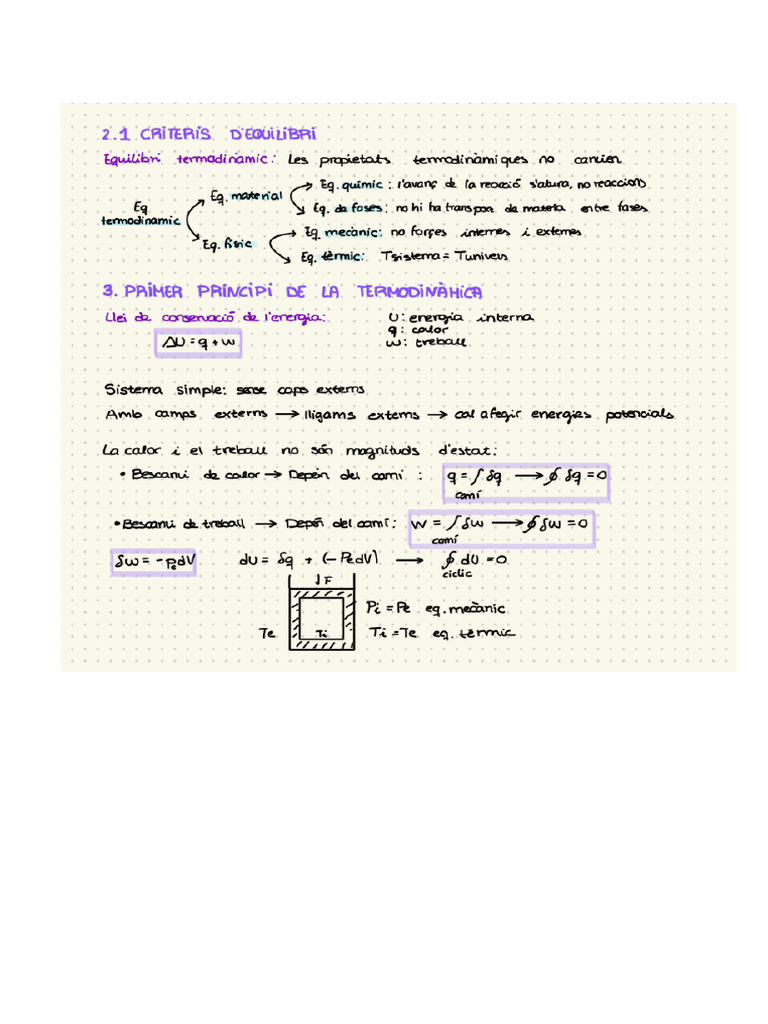 2.1 CRITERIS D'EQUILIBRI
Equilibri termodinàmic: Les propietats termodinàmiques no canvien
Eq. químic: l'avanç de la reacció s'atura, no reacciona
Eq. material
Eq. de fases: no hi ha transport de materia entre fases
Eq termodinamic
Eq. mecànic: no forçes internes i externes
Eq. físic
Eq. tèrmic: Tsistema = Tunivers
3. PRIMER PRINCIPI DE LA TERMODINÀMICA
Llei de conservació de l'energia: U: energia interna
q: calor
ΔU = q + w w: treball
Sistema simple: sense caps externs
Amb camps externs → lligams externs → cal afegir energies potencials
La calor i el treball no són magnituds d'estat:
• Bescanvi de calor → Depèn del camí : q = ∫ δq → ∮ δq = 0
camí
• Bescanvi de treball → Depèn del camí: w = ∫ δw → ∮ δw = 0
camí
δw = -PedV dU = δq + (-PedV) → ∮ dU = 0
ciclic
↓F
Pi = Pe eq. mecànic
Te Ti Ti = Te eq. tèrmic